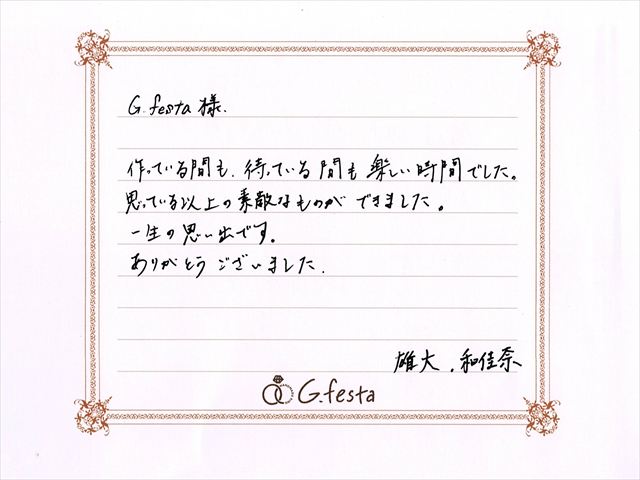 G.festa 様.
作っている間も、待っている間も楽しい時間でした。
思っている以上の素敵なものができました。
一生の思い出です。
ありがとうございました.
雄大 . 和佳奈
G.festa